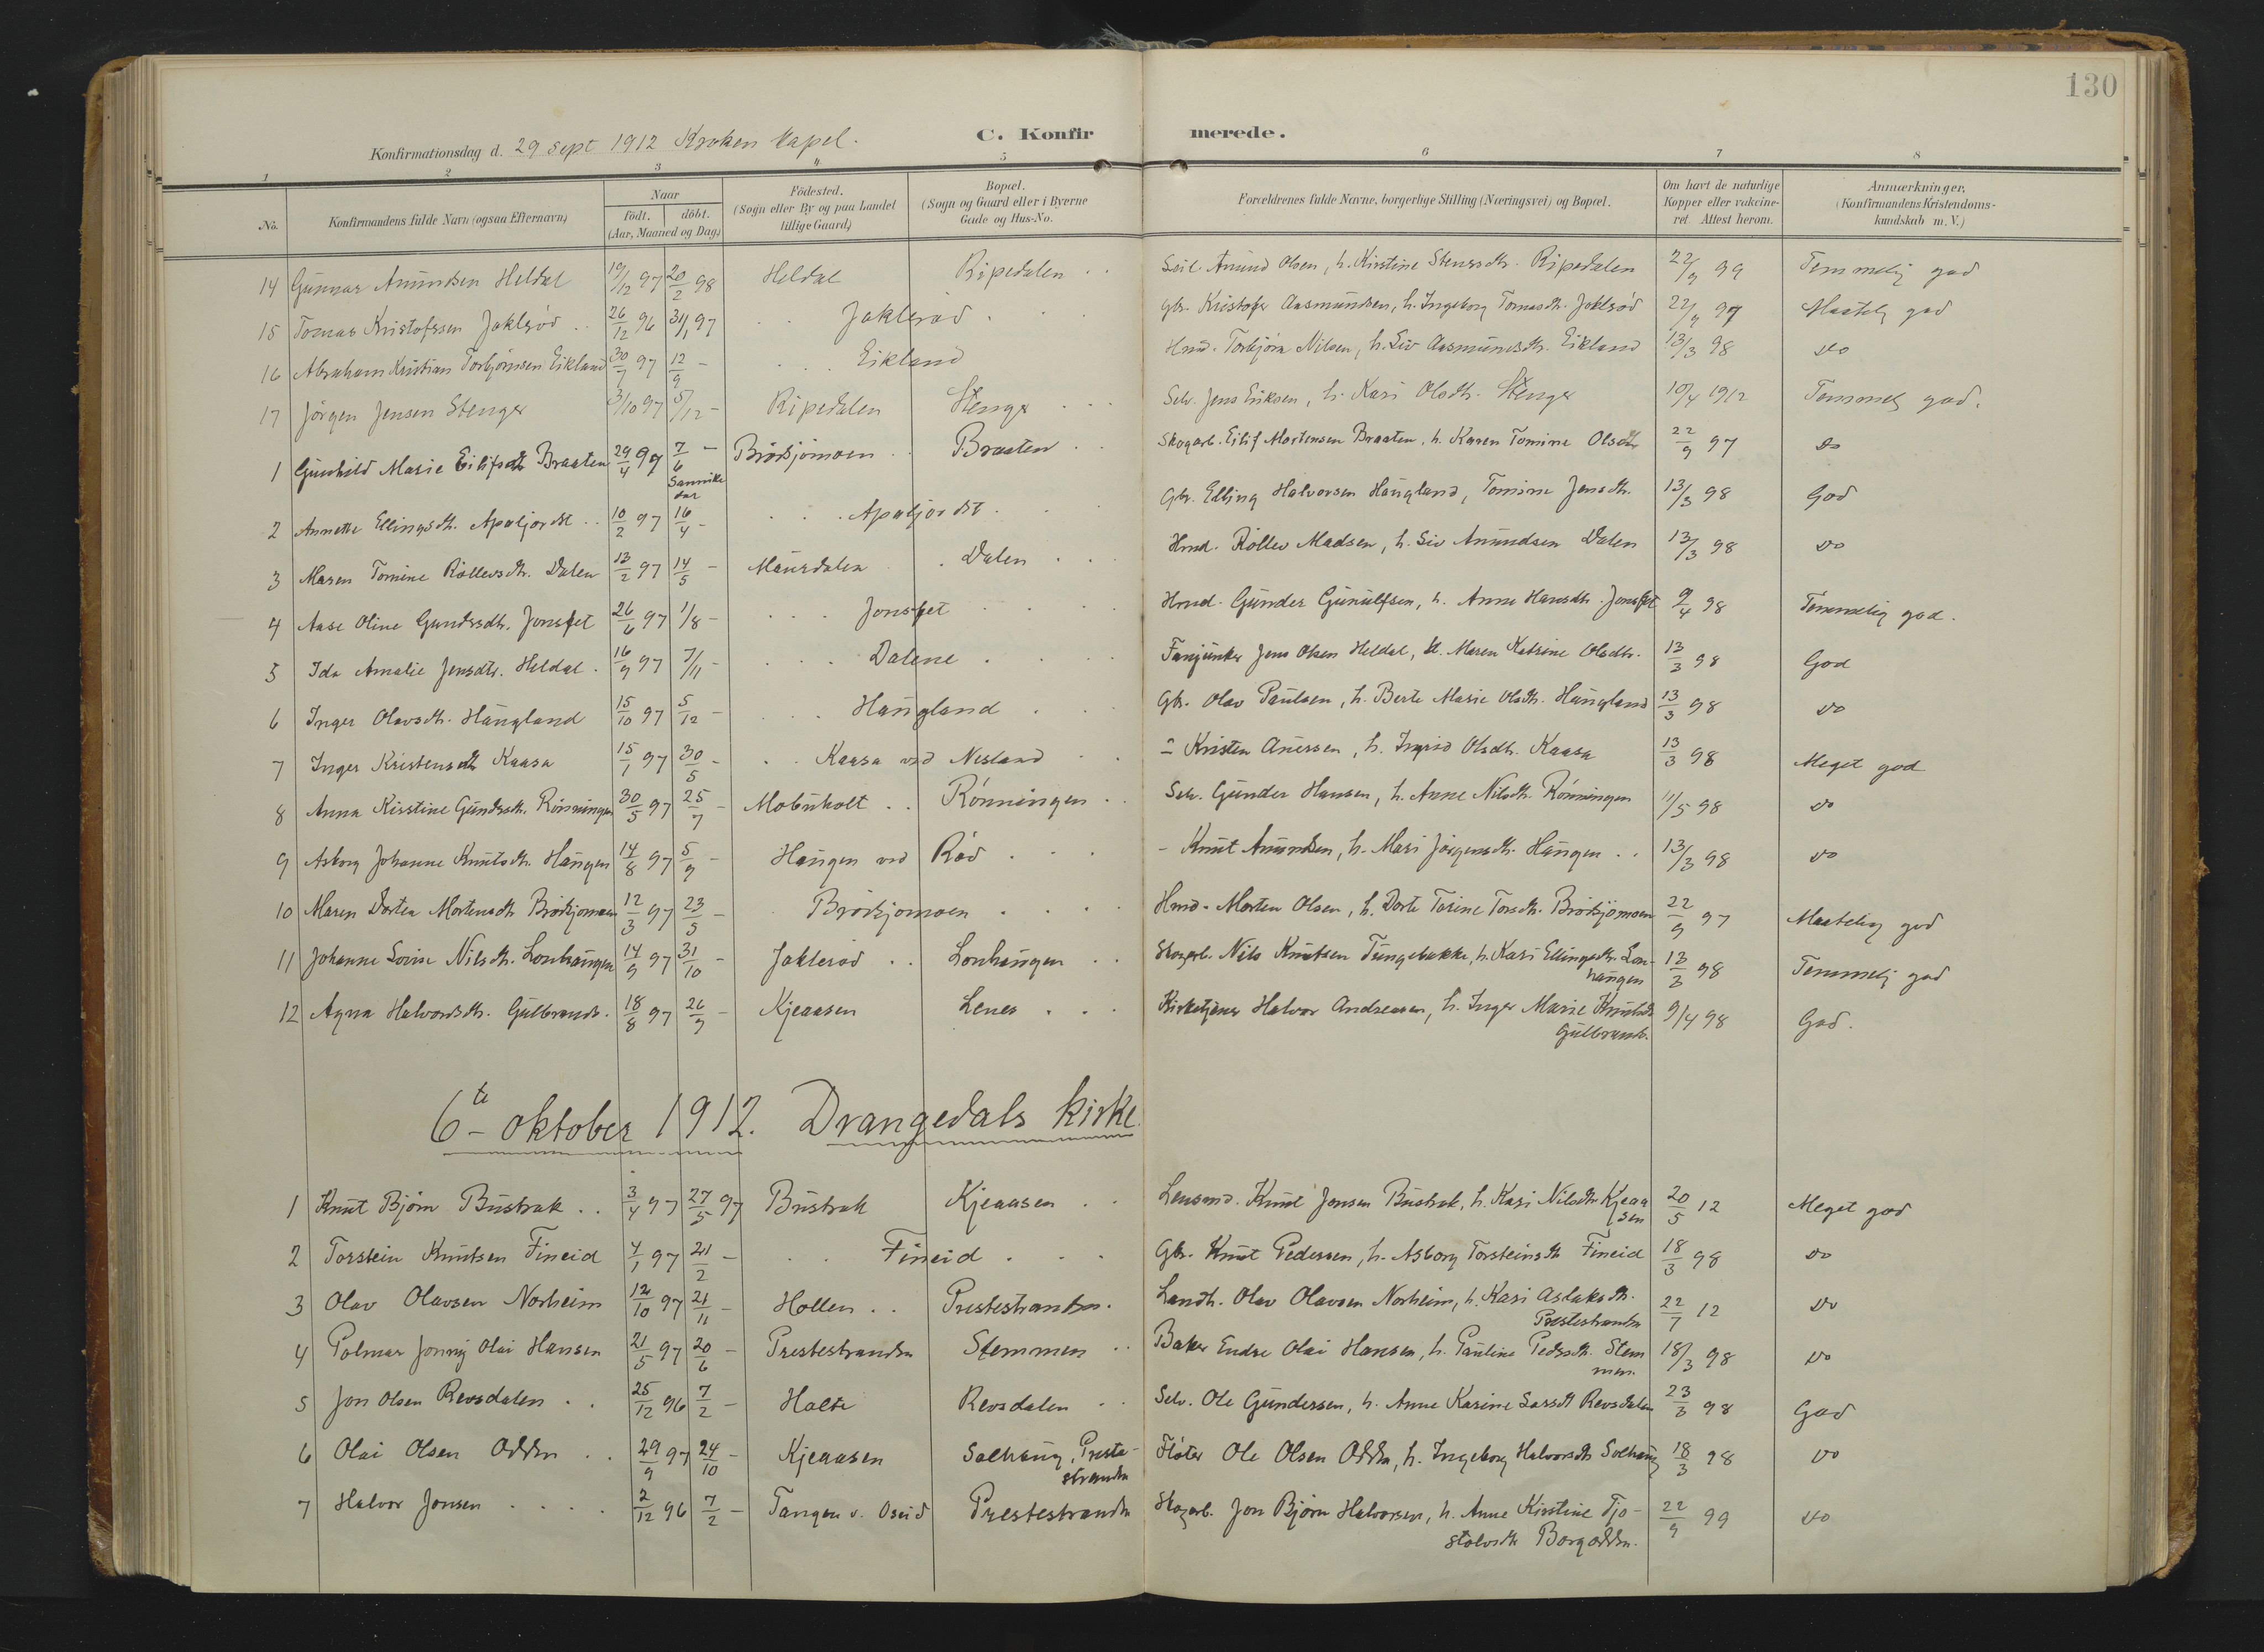 130
C. Konfir merede.
Konfirmationsdag d. 29 sept 1912 Kroken kapel.
1 2 3 4 5 6 7 8
No. Konfirmandens fulde Navn (ogsaa Efternavn) Naar födt. döbt. (Aar, Maaned og Dag) Födested. (Sogn eller By og paa Landet tillige Gaard) Bopæl. (Sogn og Gaard eller i Byerne Gade og Hus-No. Forældrenes fulde Navne, borgerlige Stilling (Næringsvei) og Bopæl. Om havt de naturlige Kopper eller vakcineret. Attest herom. Anmærkninger. (Konfirmandens Kristendomskundskab m. V.)
14 Gunnar Anundsen Heldal 19/12 97 20/2 98 Heldal Ripedalen Anund Olsen, h. Kirstine Ripedalen 22/9 99 Temmelig god
15 Tomas Kristofssen Jaklerød 26/12 96 31/1 97 Jaklerød Gbr. Kristofer Aasmundsen, h. Ingeborg Tomasdtr. Jaklerød 22/9 97 Maatelig god
16 Abraham Kristian Torbjørnsen Eikland 30/7 97 12/9 - Eikland Hmd. Torbjørn Nilsen, h. Liv Aasmundsdtr. Eikland 13/3 98 do
17 Jørgen Jensen Stenger 3/10 97 5/12 - Ripedalen Stenger Selv. Jens Eriksen, h. Kari Olsdtr. Stenger 10/4 1912 Temmelig god.
1 Gunhild Marie Eilifsdtr Braaten 29/4 97 7/6 - Brødsjømoen Braaten Skogarb. Eilif Mortensen Braaten, h. Karen Tomine Olsdtr 22/9 97 do
Sannikedal
2 Annette Ellingsdtr. Apaljordet 10/2 97 16/4 - Apaljordet Gbr. Elling Halvorsen Haugland, Tomine Jensdtr. 13/3 98 God
3 Maren Tomine Rollevsdtr. Dalen 13/2 97 14/5 - Mausdalen Dalen Hmd. Rollev Madsen, h. Siv Anundsen Dalen 13/3 98 do
4 Aase Oline Gundersdtr. Jonsfet 26/6 97 1/8 - Jonsfet Hmd. Gunder Gunulfsen, h. Anne Hansdtr. Jonsfet 9/4 98 Temmelig god.
5 Ida Amalie Jensdtr. Heldal 16/9 97 7/11 - Dalene Fanjunker Jens Olsen Heldal, h. Maren Katrine Olsdtr. 13/3 98 God
6 Inger Olavsdtr. Haugland 15/10 97 5/12 - Haugland Gbr. Olav Paulsen, h. Berte Marie Olsdtr. Haugland 13/3 98 do
7 Inger Kristensdtr Kaasa 15/1 97 30/5 - Kaasa ved Nesland - Kristen h. Ingrid Olsdtr. Kaasa 13/3 98 Meget god
8 Anna Kirstine Gundersdtr. Rønningen 30/5 97 25/7 - Mobuholt Rønningen Selv. Gunder Hansen, h. Anne Nilsdtr. Rønningen 11/5 98 do
9 Asborg Johanne Knutsdtr. Haugen 14/8 97 5/9 - Haugen ved Rød - Knut Anundsen, h. Mari Jørgensdtr. Haugen 13/3 98 do
10 Maren Dortea Mortensdtr Brødsjømoen 12/3 97 23/5 - Brødsjømoen Hmd. Morten Olsen, h. Dorte Torine Torsdtr. Brødsjømoen 22/9 97 Maatelig god
11 Johanne Lovise Nilsdtr. Lonhaugen 14/9 97 31/10 - Jaklerød Lonhaugen Skogarb. Nils Knutsen Tungebakke, h. Kari Ellingsdtr. Lon-
haugen 13/3 98 Temmelig god
12 Agna Halvorsdtr. Gulbrands. 18/8 97 26/9 - Kjeaasen Lenes Kirketjener Halvor Andreassen, h. Inger Marie Knutsdtr
Gulbrands. 9/4 98 God.
6te oktober 1912. Drangedals kirke.
1 Knut Bjørn Bustrak 3/4 97 27/5 97 Bustrak Kjeaasen Lensmd. Knut Jonsen Bustrak, h. Kari Nilsdtr Kjeaa
sen 20/5 12 Meget god
2 Torstein Knutsen Fineid 4/1 97 21/2 - Fineid Gbr. Knut Pedersen, h. Asborg Torsteinsdtr Fineid 18/3 98 do
3 Olav Olavsen Norheim 12/10 97 21/11 - Hollen Prestestranden Landh. Olav Olavsen Norheim, h. Kari Aslaksdtr.
Prestestranden 22/7 12 do
4 Palmar Jonny Olai Hansen 21/5 97 20/6 - Prestestranden Stemmen Baker Endre Olai Hansen, h. Pauline Pedersdtr. Stem
men 18/3 98 do
5 Jon Olsen Revsdalen 25/12 96 7/2 - Holte Revsdalen Selv. Ole Gundersen, h. Anne Karine Larsdt Revsdalen 23/3 98 God
6 Olai Olsen Odden 29/9 97 24/10 - Kjeaasen Solhaug, Preste-
stranden Fløter Ole Olsen Odden, h. Ingeborg Halvorsdtr Solhaug 18/3 98 do
7 Halvor Jonsen 2/12 96 7/2 - Tangen v. Oseid Prestestranden Skogarb. Jon Bjørn Halvorsen, h. Anne Kirstine Tjo-
stolvsdtr Borgodden. 22/9 99 do